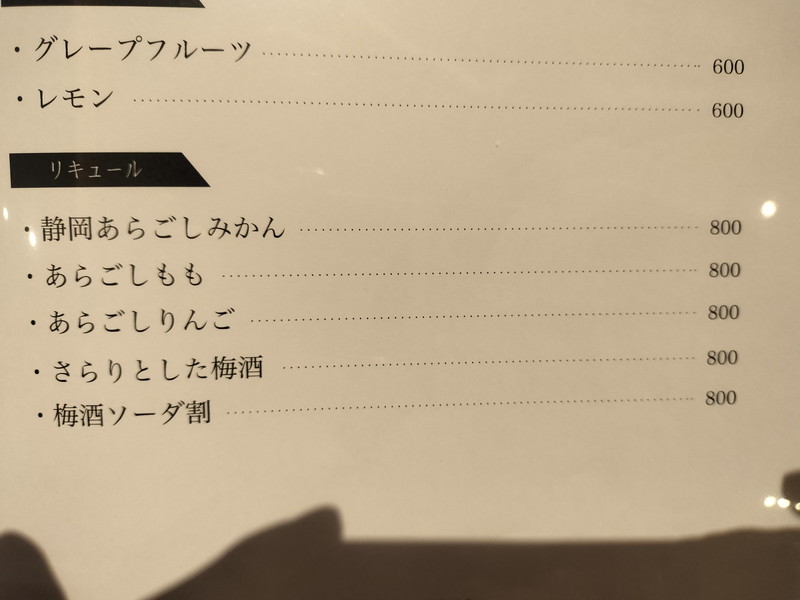 ・グレープフルーツ 600
・レモン 600
リキュール
・静岡あらごしみかん 800
・あらごしもも 800
・あらごしりんご 800
・さらりとした梅酒 800
・梅酒ソーダ割 800